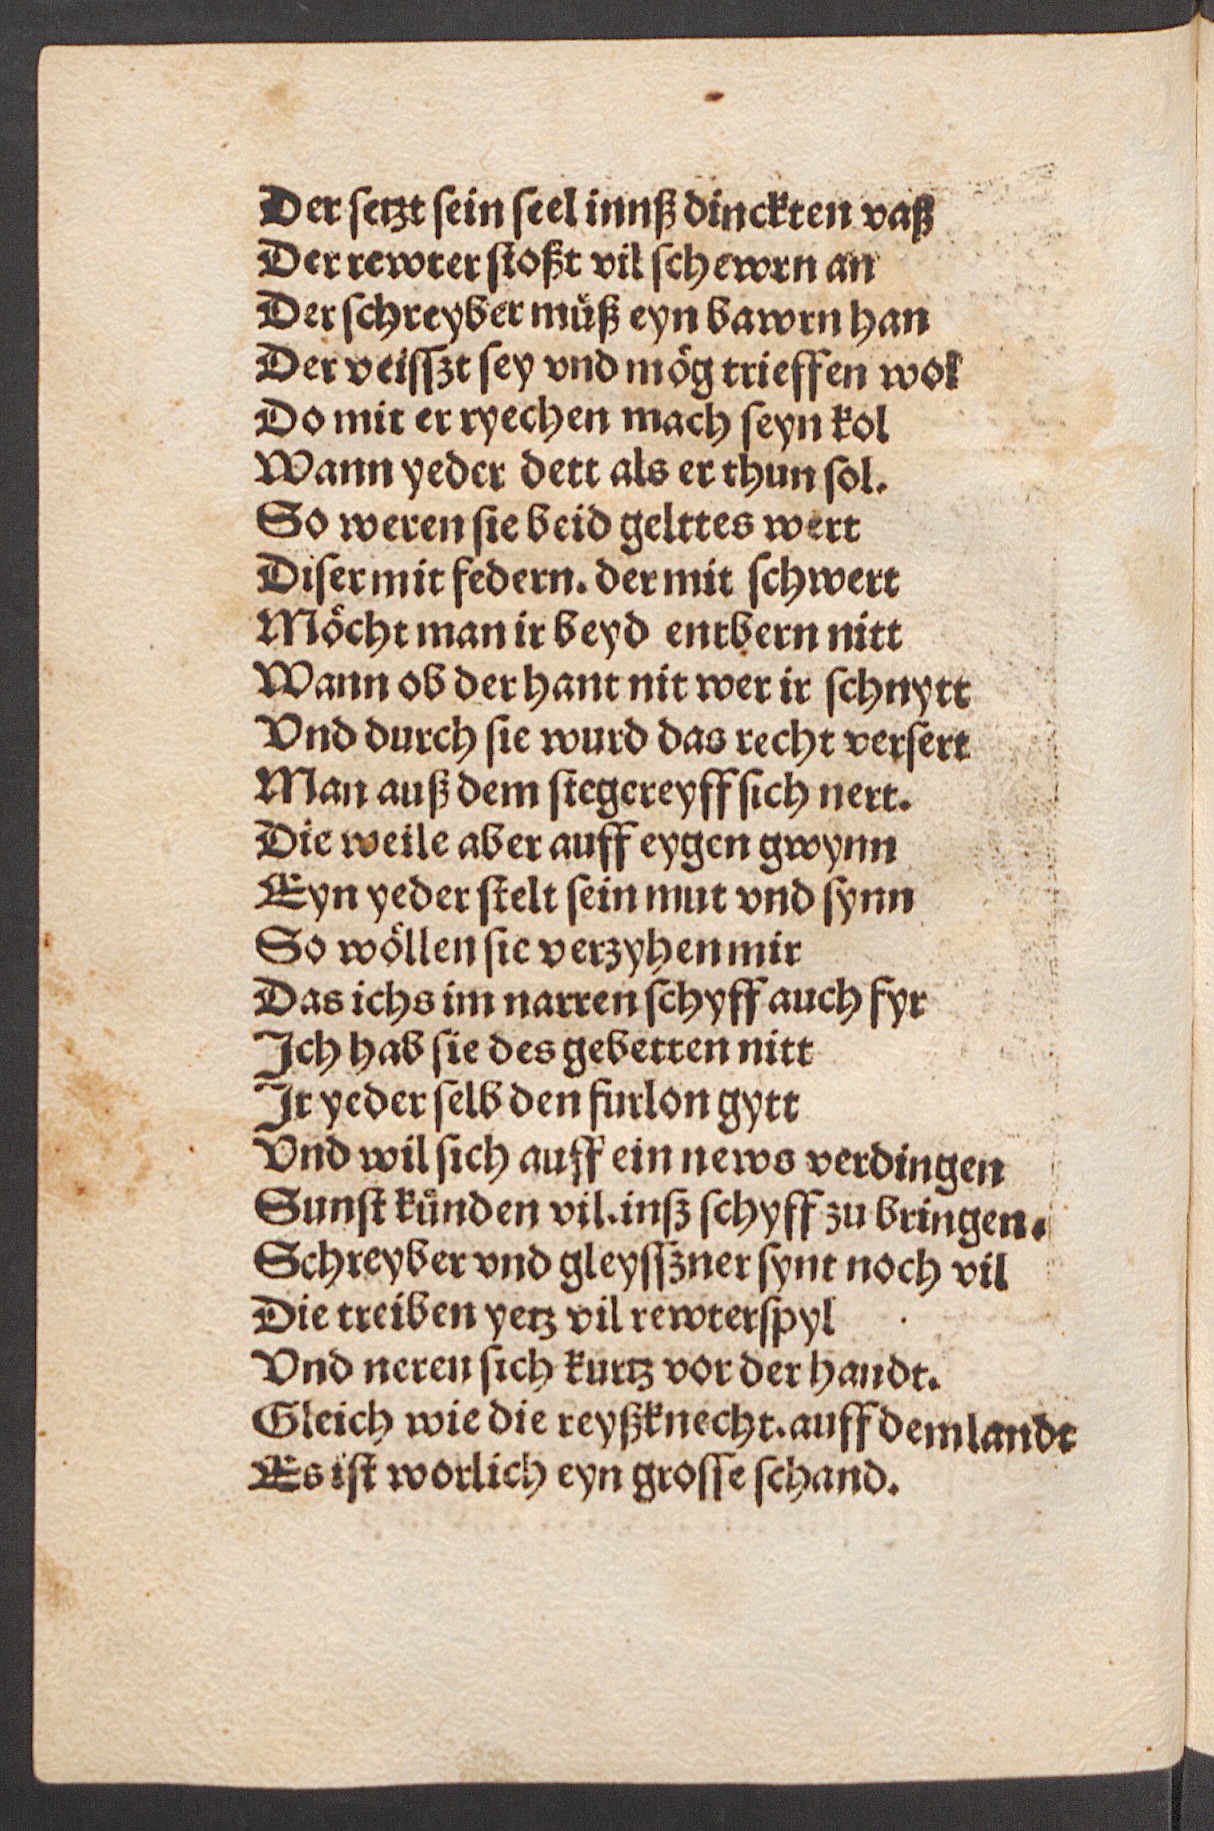 Der setzt sein seel innß dinckten vaß
Der rewter stoßt vil schewrn an
Der schreyber muͤß eyn bawrn han
Der veisszt sey vnd moͤg trieffen wol
Do mit er ryechen mach seyn kol
Wann yeder dett als er thun sol.
So weren sie beid gelttes wert
Diser mit federn. der mit schwert
Moͤcht man ir beyd entbern nitt
Wann ob der hant nit wer ir schnytt
Vnd durch sie wurd das recht versert
Man auß dem stegereyff sich nert.
Die weile aber auff eygen gwynn
Eyn yeder stelt sein mut vnd synn
So woͤllen sie verzyhen mir
Das ichs im narren schyff auch fyr
Jch hab sie des gebetten nitt
Jr yeder selb den furlon gytt
Vnd wil sich auff ein news verdingen
Sunst kuͤnden vil. insz schyff zu bringen.
Schreyber vnd gleysszner synt noch vil
Die treiben yetz vil rewterspyl
Vnd neren sich kurtz vor der handt.
Gleich wie die reyßknecht. auff dem landt
Es ist worlich eyn grosse schand.